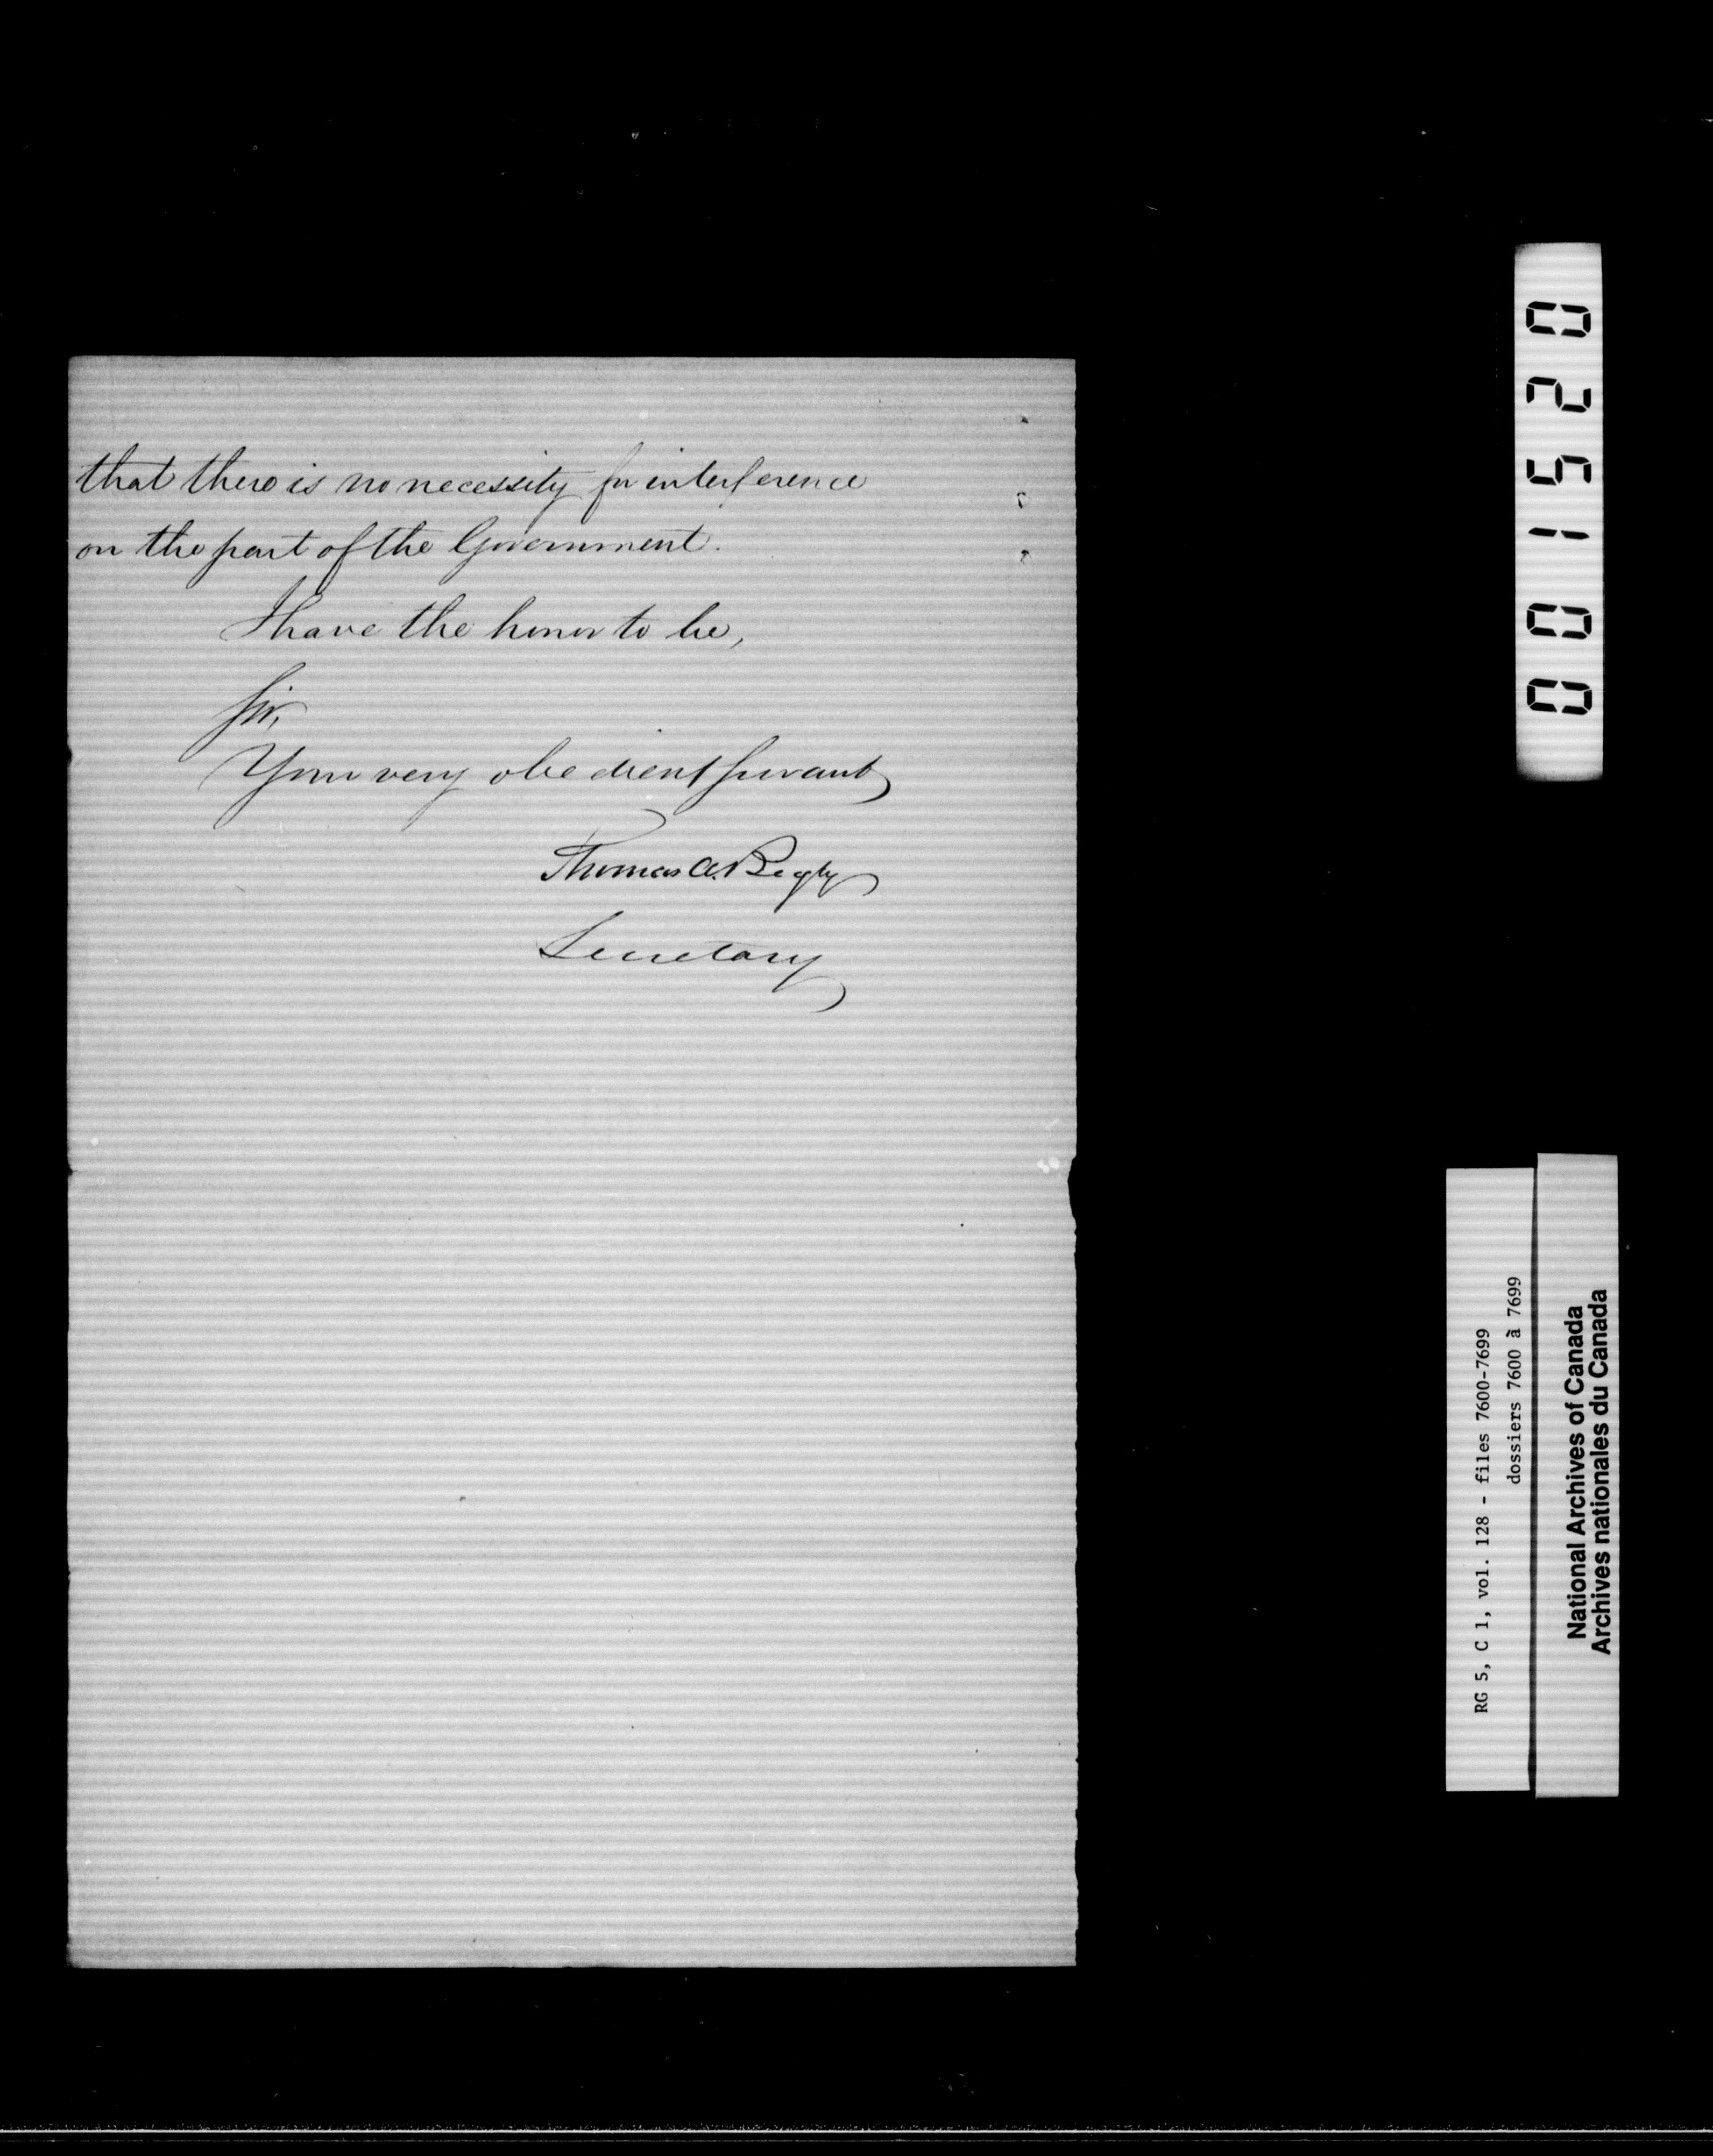 that there is no necessity for interference
on the part of the Government.
I have the honor to be,
Sir,
Your very obedient Servant
Thomas A. Begly
Secretary
001520
RG 5, C 1, vol. 128 - files 7600-7699
dossiers 7600 à 7699
National Archives of Canada
Archives nationales du Canada